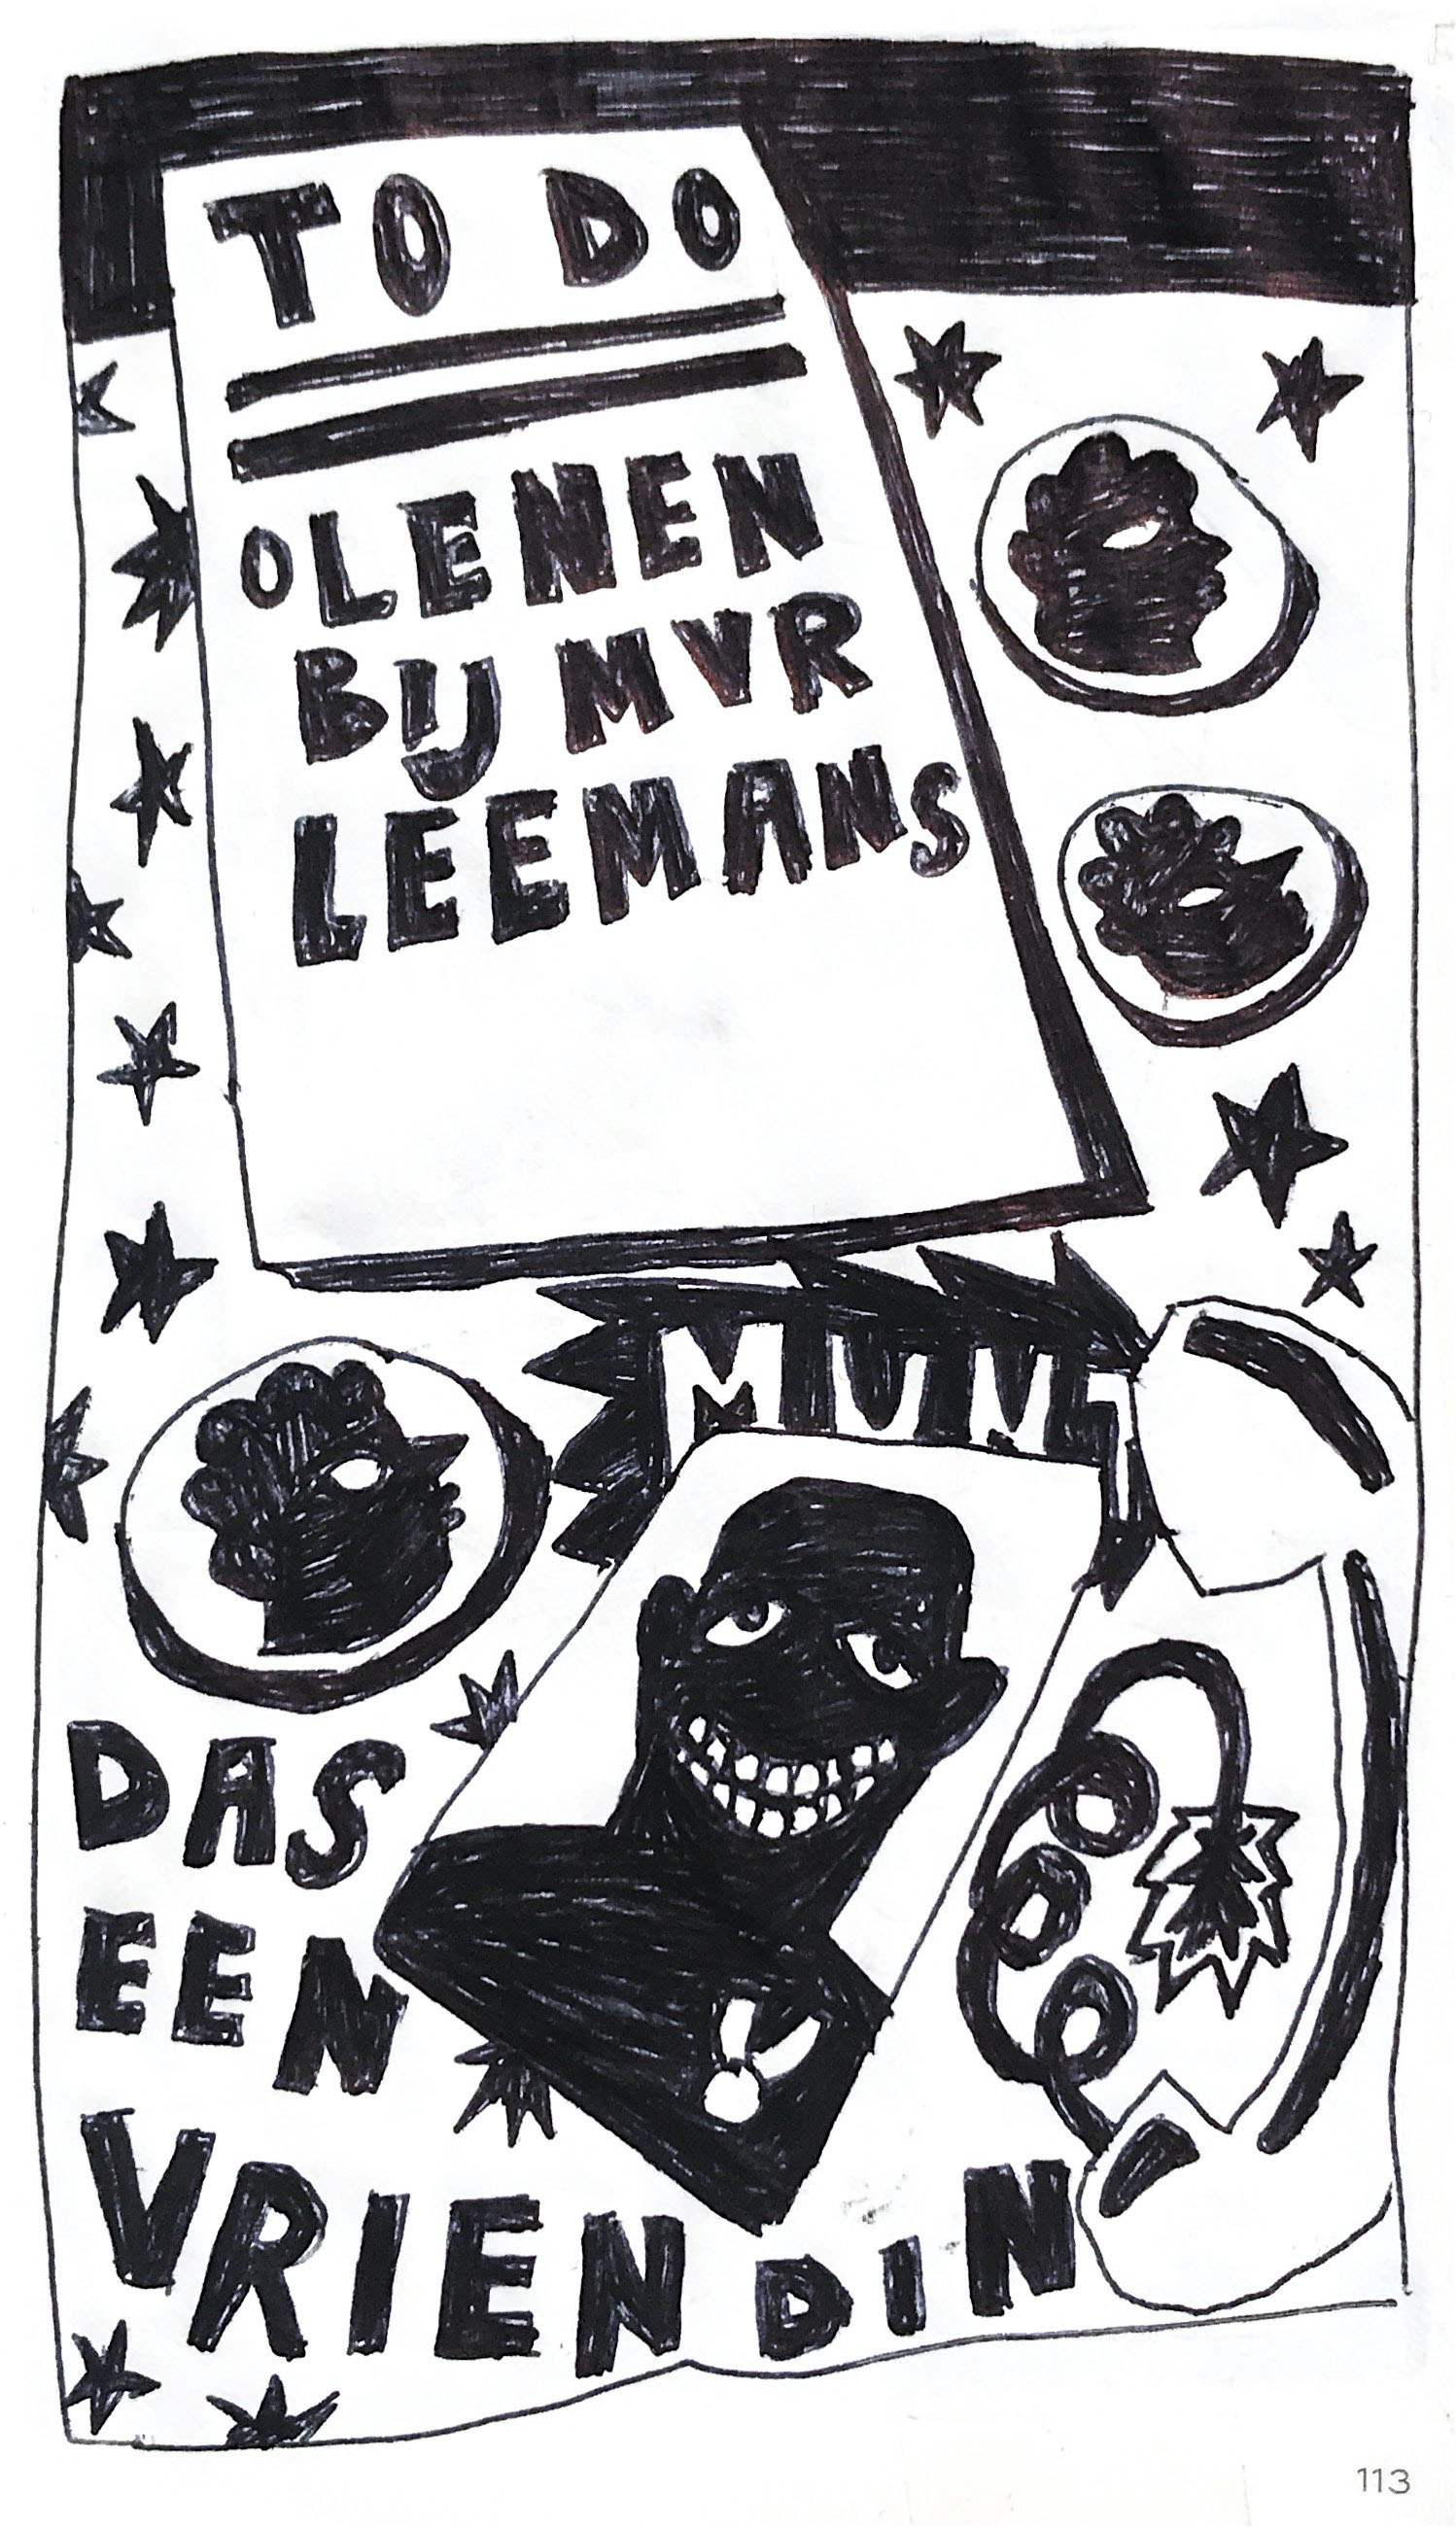 TO DO
o LENEN
BIJ MVR
LEEMANS
MUNT
DAS
EEN
VRIENDIN
113